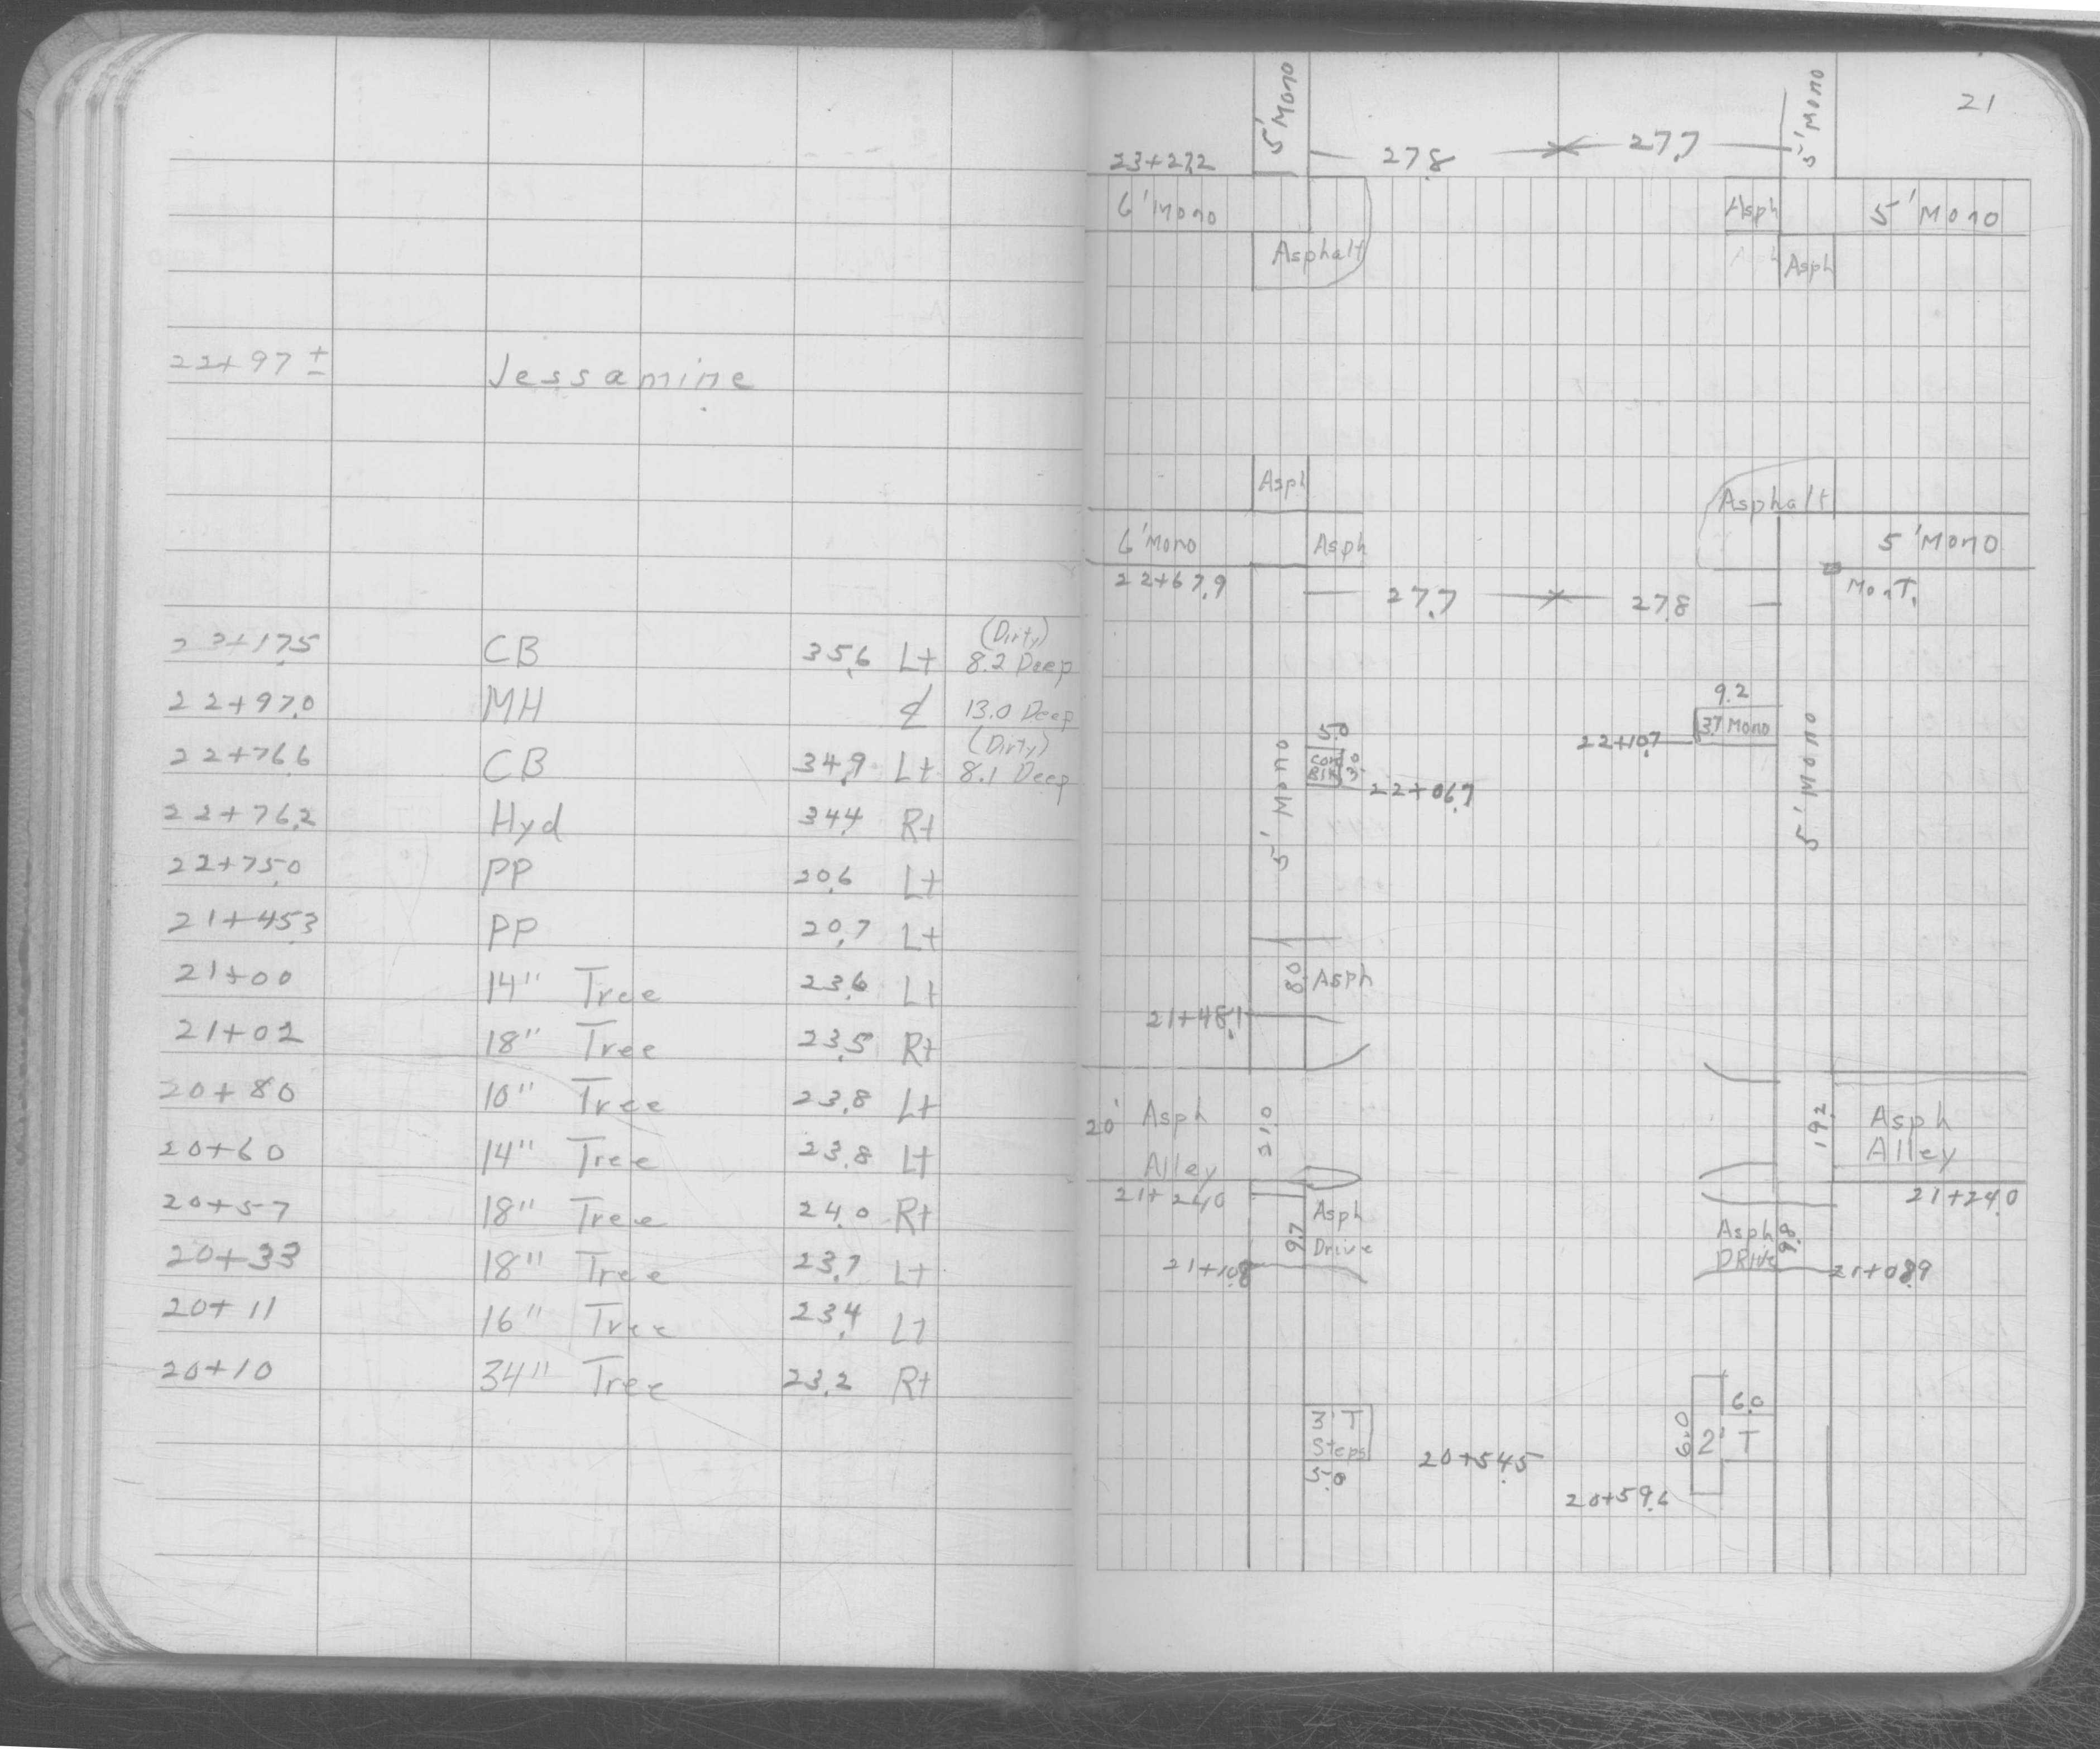 22+97± Jessamine
23+17.5 CB 35.6 Lt (Dirty) 8.2 Deep
22+97.0 MH ₵ 13.0 Deep
22+76.6 CB 34.9 Lt (Dirty) 8.1 Deep
22+76.2 Hyd 34.4 Rt
22+75.0 PP 20.6 Lt
21+45.3 PP 20.7 Lt
21+00 14" Tree 23.6 Lt
21+02 18" Tree 23.5 Rt
20+80 10" Tree 23.8 Lt
20+60 14" Tree 23.8 Lt
20+57 18" Tree 24.0 Rt
20+33 18" Tree 23.7 Lt
20+11 16" Tree 23.4 Lt
20+10 34" Tree 23.2 Rt
21
5' Mono
5' Mono
23+27.2
27.8
27.7
6' Mono
Asph
5' Mono
Asphalt
Asph
Asph
Asphalt
6' Mono
Asph
5' Mono
22+67.9
27.7
27.8
Mon T.
9.2
3.7 Mono
22+10.7
5.0
Conc
Blk
22+06.7
5' Mono
5' Mono
8.0
Asph
21+48.1
20' Asph
Alley
21.0
19.2
Asph
Alley
21+24.0
21+24.0
9.7
Asph
Drive
21+10.8
Asph
DRive
9.8
21+08.9
3' T
Steps
5.0
20+54.5
6.0
6.0
2' T
20+59.6